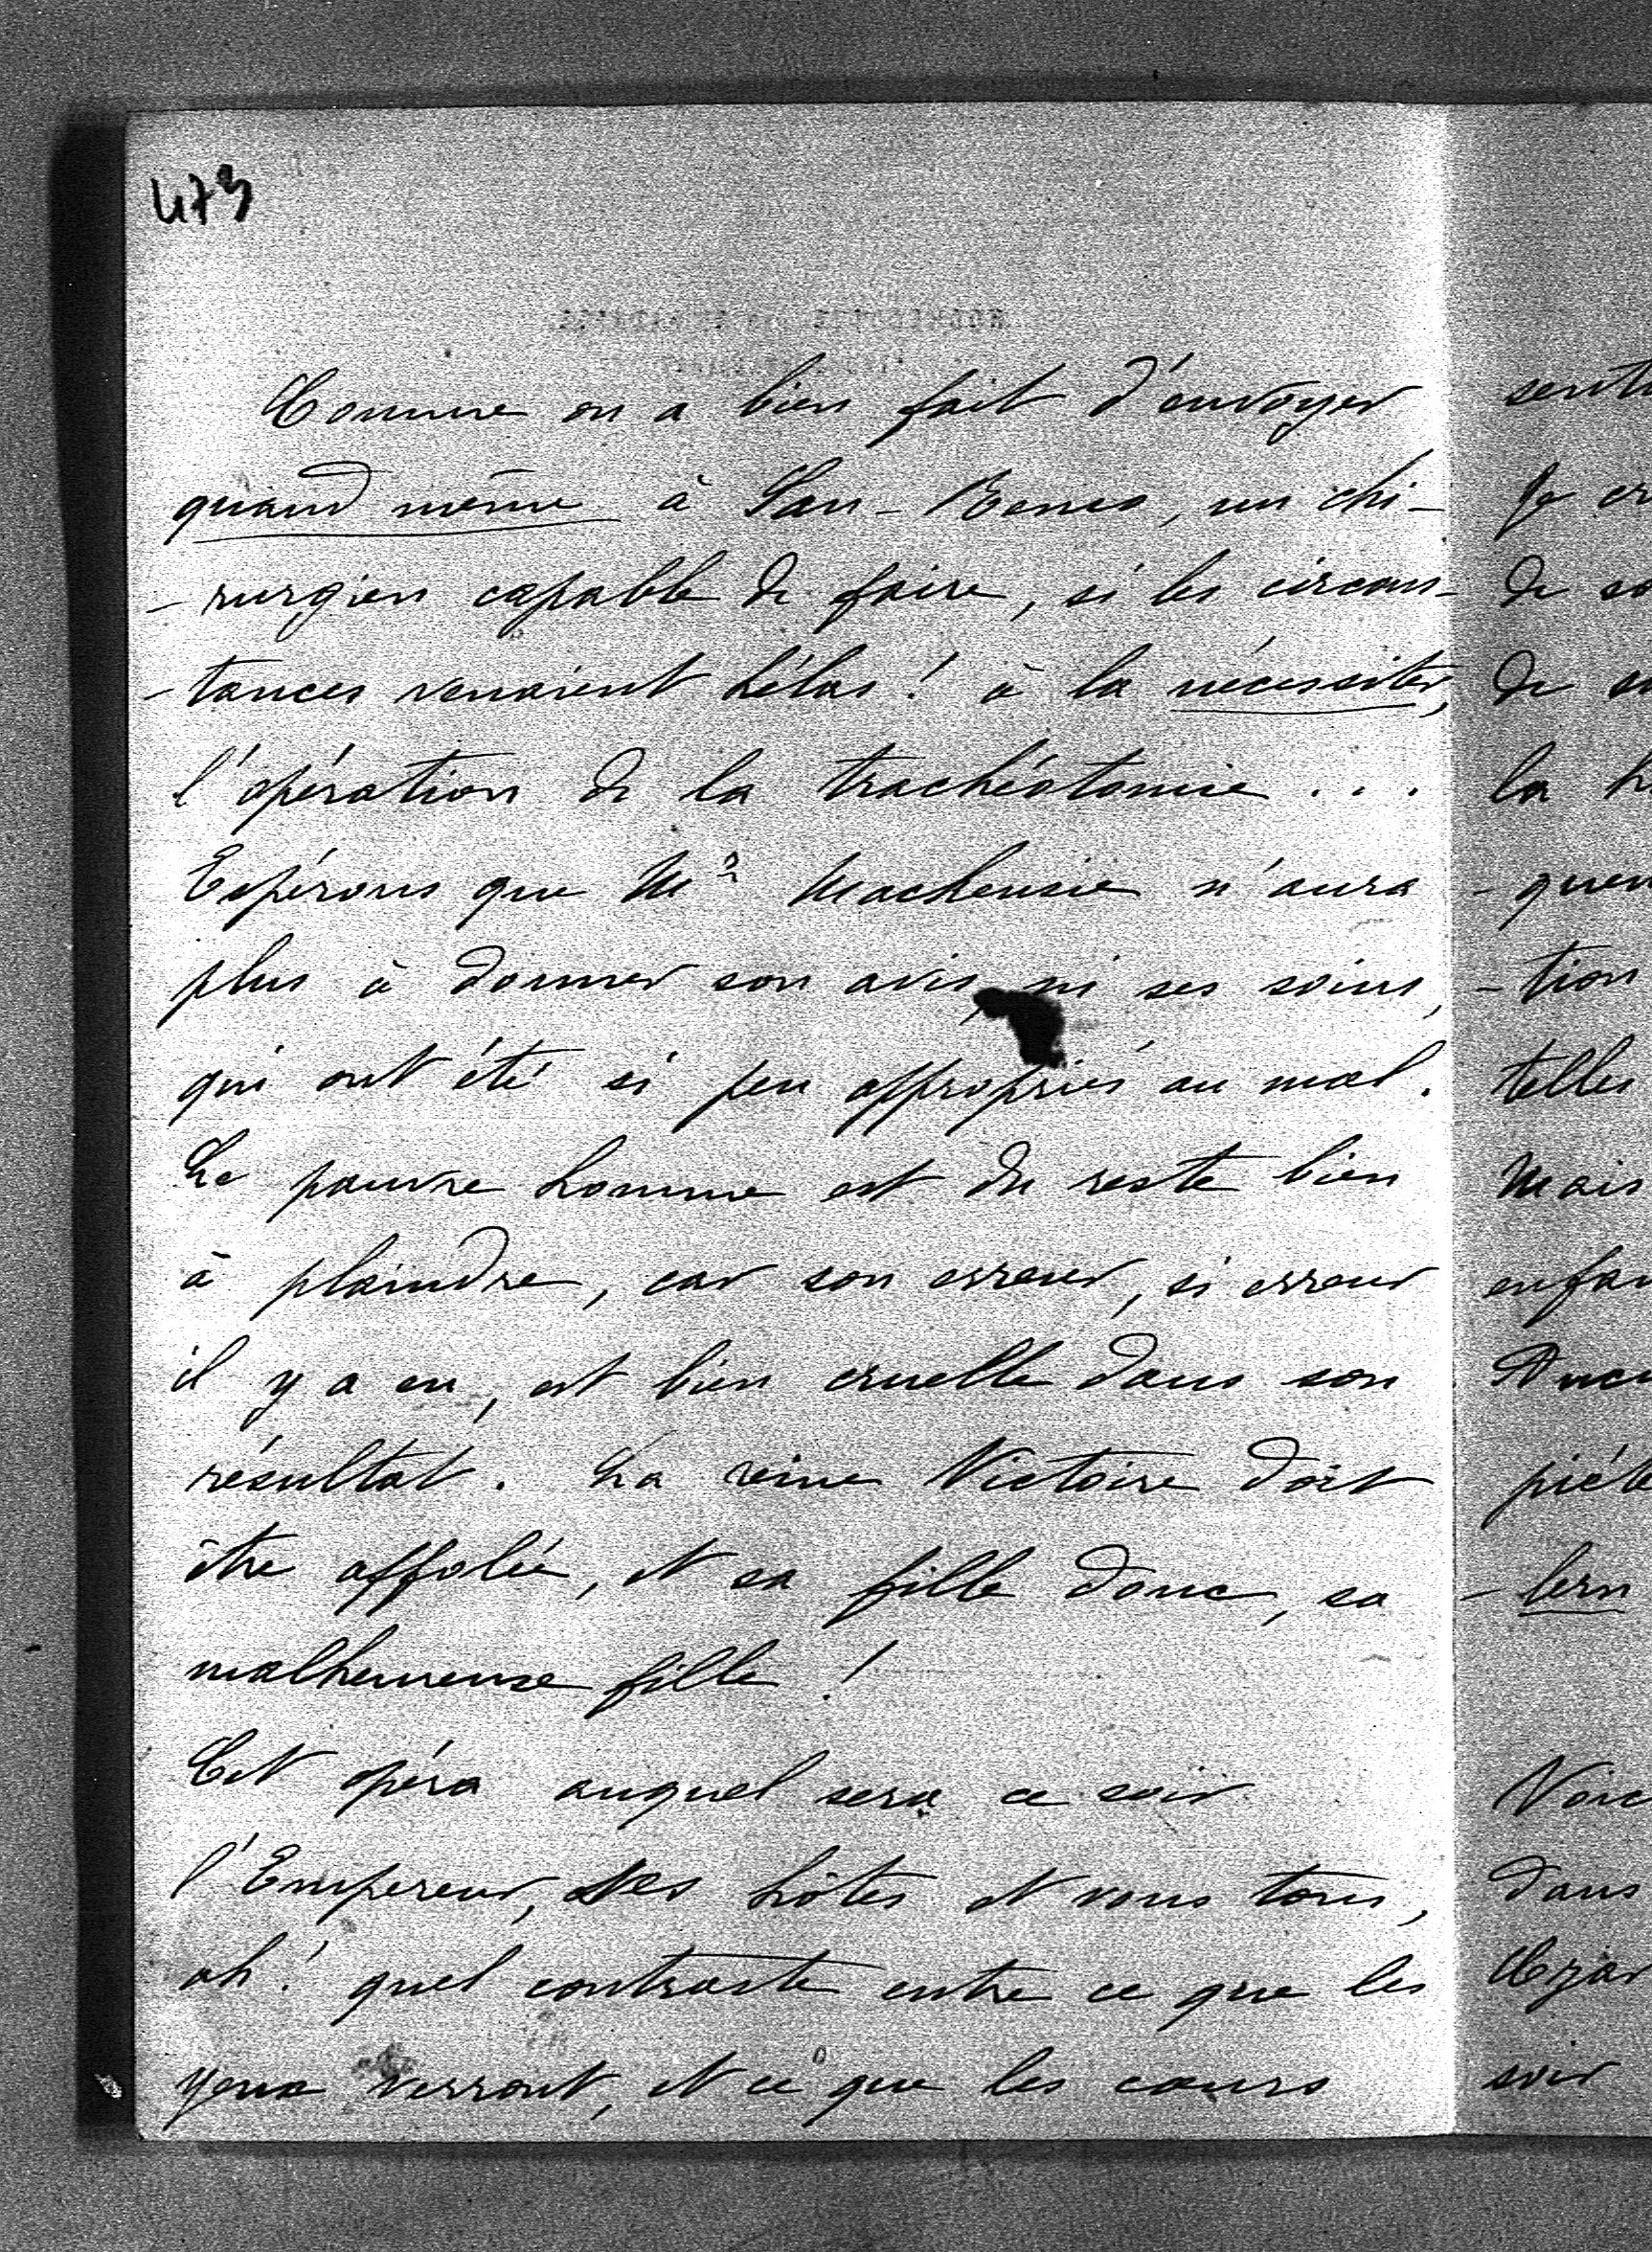 473
Comme on a bien fait d'envoyer
quand même à San-Remo, un chi-
-rurgien capable de faire, si les circons-
-tances venaient hélas ! à la nécessiter,
l'opération de la trachéotomie . . .
Espérons que Mr Mackensie n'aura
plus à donner son avis, ni ses soins,
qui ont été si peu appropriés au mal.
Le pauvre homme est du reste bien
à plaindre, car son erreur, si erreur
il y a eu, est bien cruelle dans son
résultat. La reine Victoire doit
être affolée, et sa fille donc, sa
malheureuse fille !
Cet opéra auquel sera ce soir
l'Empereur, ses hôtes et vous tous,
ah ! quel contraste entre ce que les
yeux verront, et ce que les cœurs
de
de
la
-tion
telles
Mais
dans
soir